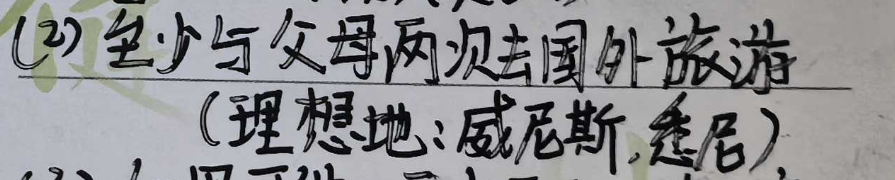 (2)至少与父母两次去国外旅游
(理想地:威尼斯,悉尼)